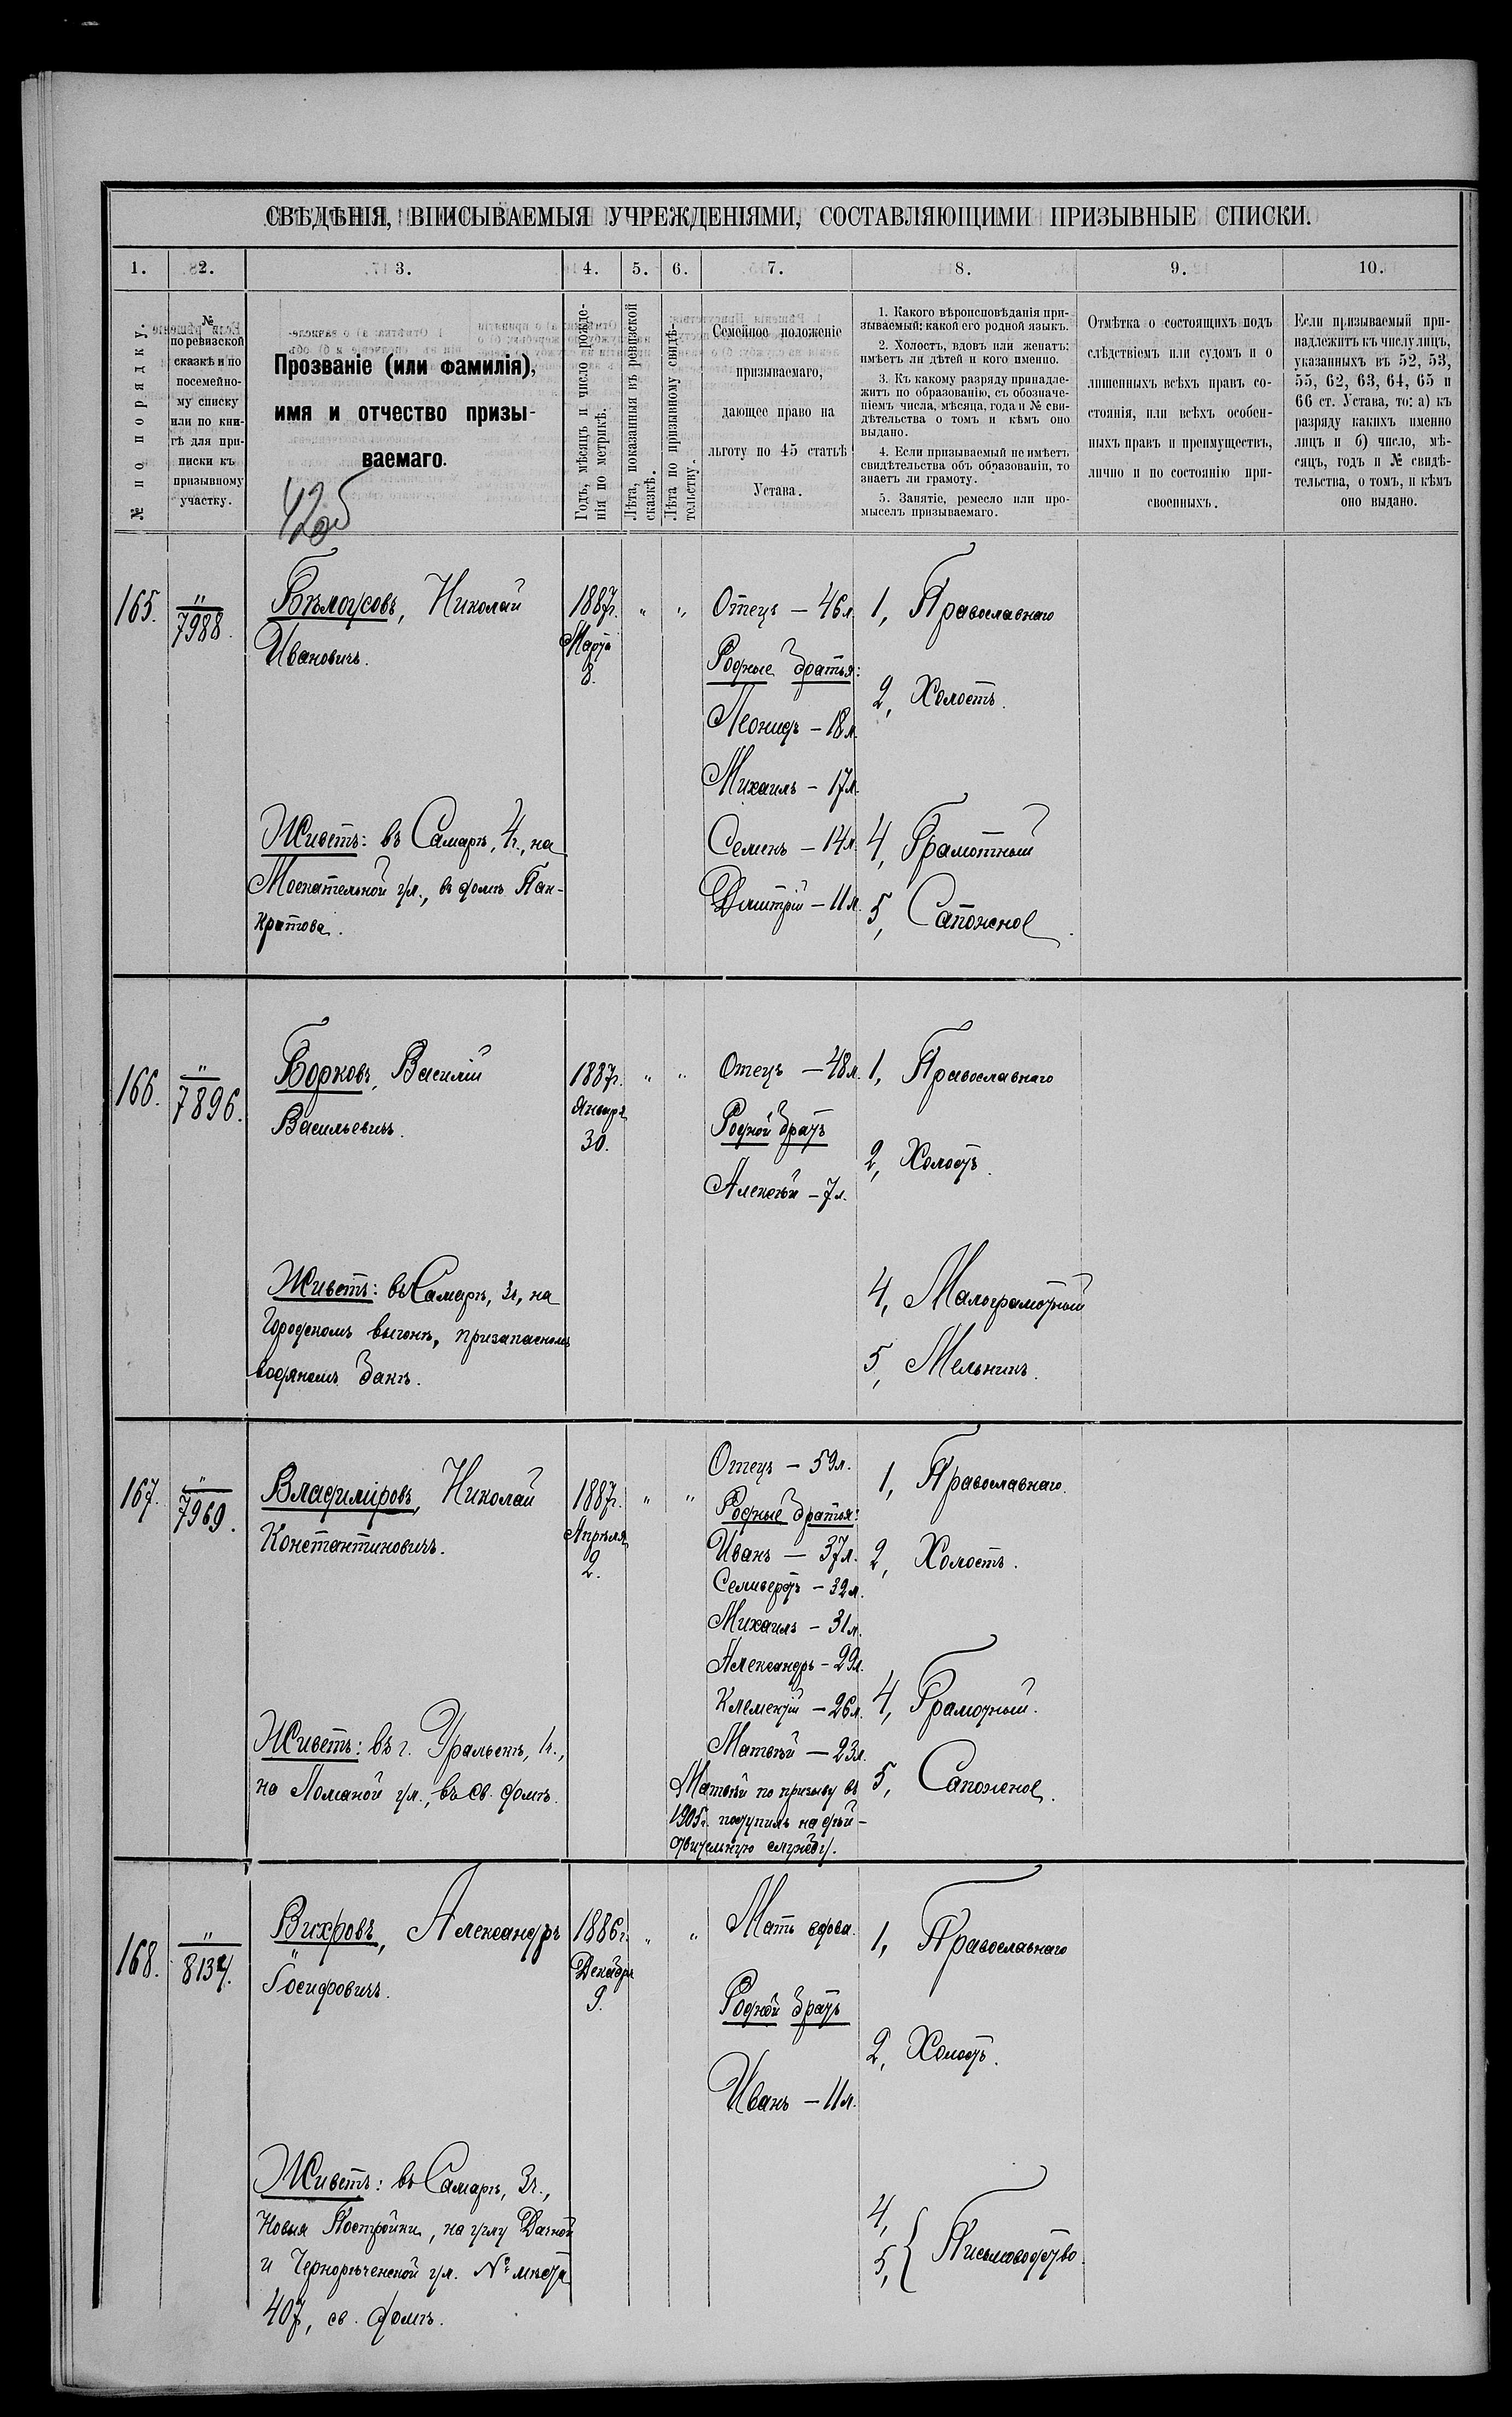 СВѢДѢНІЯ, ВПИСЫВАЕМЫЯ УЧРЕЖДЕНІЯМИ, СОСТАВЛЯЮЩИМИ ПРИЗЫВНЫЕ СПИСКИ.
1. 2. 3. 4. 5. 6. 7. 8. 9. 10.
№ по порядку.
№
по ревизской
сказкѣ и по
посемейно-
му списку
или по кни-
гѣ для при-
писки къ
призывному
участку.
Прозваніе (или фамилія),
имя и отчество призы-
ваемаго.
Годъ, мѣсяцъ и число рожде-
нія по метрикѣ.
Лѣта, показанныя въ ревизской
сказкѣ.
Лѣта по призывному свидѣ-
тельству.
Семейное положеніе
призываемаго,
дающее право на
льготу по 45 статьѣ
Устава.
1. Какого вѣроисповѣданія при-
зываемый: какой его родной языкъ.
2. Холостъ, вдовъ или женатъ:
имѣетъ ли дѣтей и кого именно.
3. Къ какому разряду принадле-
житъ по образованію, съ обозначе-
ніемъ числа, мѣсяца, года и № сви-
дѣтельства о томъ и кѣмъ оно
выдано.
4. Если призываемый не имѣетъ
свидѣтельства объ образованіи, то
знаетъ ли грамоту.
5. Занятіе, ремесло или про-
мыселъ призываемаго.
Отмѣтка о состоящихъ подъ
слѣдствіемъ или судомъ и о
лишенныхъ всѣхъ правъ со-
стоянія, или всѣхъ особен-
ныхъ правъ и преимуществъ,
лично и по состоянію при-
своенныхъ.
Если призываемый при-
надлежитъ къ числу лицъ,
указанныхъ въ 52, 53,
55, 62, 63, 64, 65 и
66 ст. Устава, то: а) къ
разряду какихъ именно
лицъ и б) число, мѣ-
сяцъ, годъ и № свидѣ-
тельства, о томъ, и кѣмъ
оно выдано.
165.
"
7988.
Бѣлоусовъ, Николай
Ивановичъ.
Живетъ: въ Самарѣ, 4ч., на
Москательной ул., въ домѣ Пан-
кратова.
1887г.
Марта
8.
" "
Отецъ – 46л.
Родные братья:
Леонидъ – 18л.
Михаилъ – 17л.
Семенъ – 14л.
Дмитрій – 11л.
1, Православнаго
2, Холостъ.
4, Грамотный
5, Сапожное.
166.
"
7896.
Борковъ, Василій
Васильевичъ.
Живетъ: въ Самарѣ, 3ч., на
Городскомъ выгонѣ, при запасномъ
водяномъ бакѣ.
1887г.
Января
30.
" "
Отецъ – 48л.
Родной братъ
Алексѣй – 7л.
1, Православнаго
2, Холостъ.
4, Малограмотный
5, Мельникъ.
167.
"
7969.
Владиміровъ, Николай
Константиновичъ.
Живетъ: въ г. Уральскѣ, 1ч.,
на Ломаной ул., въ св. домѣ.
1887г.
Апрѣля
2.
" "
Отецъ – 59л.
Родные братья:
Иванъ – 37л.
Селиверстъ – 32л.
Михаилъ – 31л.
Александръ – 29л.
Клементій – 26л.
Матвѣй – 23л.
Матвѣй по призыву въ
1905г. поступилъ на дѣй-
ствительную службу.
1, Православнаго.
2, Холостъ.
4, Грамотный.
5, Сапожное.
168.
"
8134.
Вихровъ, Александръ
Іосифовичъ.
Живетъ: въ Самарѣ, 3ч.,
Новыя Постройки, на углу Дачной
и Чернорѣченской ул. № мѣста
407, св. домъ.
1886г.
Декабря
9.
" "
Мать вдова.
Родной братъ
Иванъ – 11л.
1, Православнаго
2, Холостъ.
4,
5, { Письмоводство.